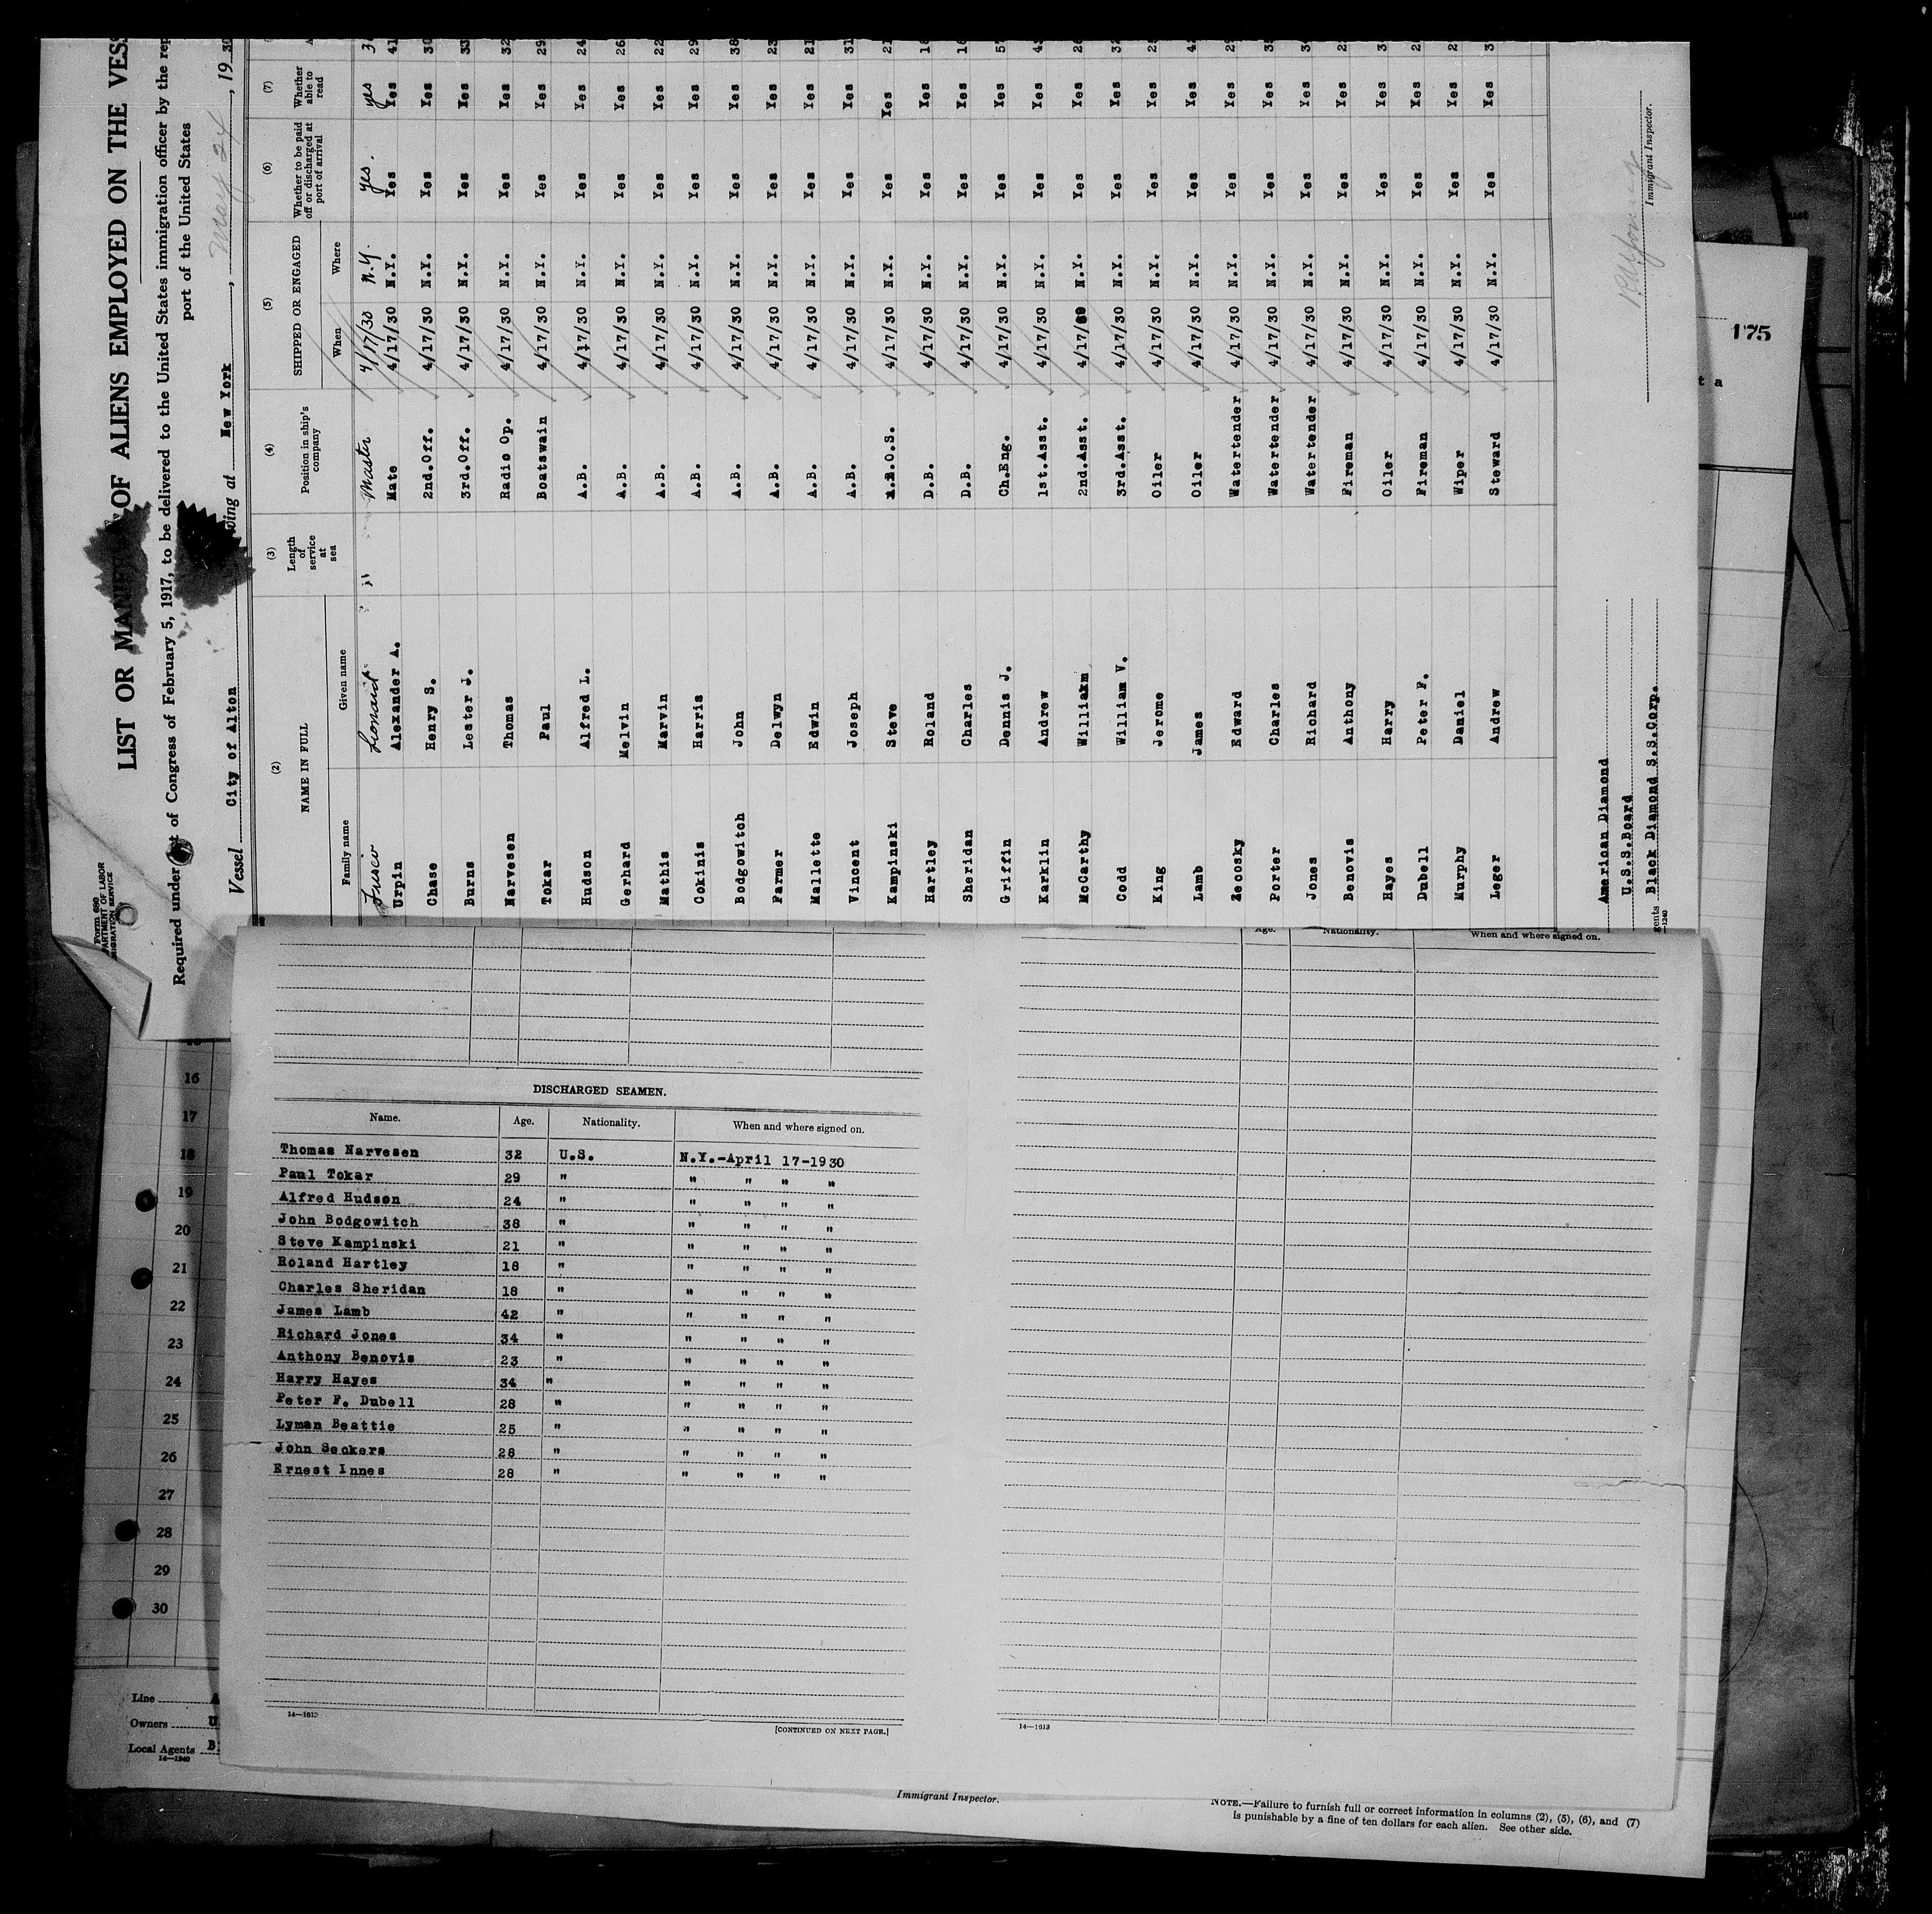 LIST OR MANIF OF ALIENS EMPLOYED ON THE VESS
Form 690
PARTMENT OF LABOR
MIGRATION SERVICE
Required under t of Congress of February 5, 1917, to be delivered to the United States immigration officer by the rep
port of the United States
Vessel City of Alton ving at New York, May 24, 19 30
(2) (3) (4) (5) (6) (7)
NAME IN FULL Length of service at sea Position in ship's company SHIPPED OR ENGAGED Whether to be paid off or discharged at port of arrival Whether able to read
Family name Given name When Where
Master 4/17/30 N.Y. yes. yes
Urpin Alexander A. Mate 4/17/30 N.Y. Yes Yes 41
Chase Henry S. 2nd.Off. 4/17/30 N.Y. Yes Yes 30
Burns Lester J. 3rd.Off. 4/17/30 N.Y. Yes Yes 33
Narvesen Thomas Radio Op. 4/17/30 N.Y. Yes Yes 32
Tokar Paul Boatswain 4/17/30 N.Y. Yes Yes 29
Hudson Alfred L. A.B. 4/17/30 N.Y. Yes Yes 24
Gerhard Melvin A.B. 4/17/30 N.Y. Yes Yes 26
Mathis Marvin A.B. 4/17/30 N.Y. Yes Yes 22
Cokinis Harris A.B. 4/17/30 N.Y. Yes Yes 29
Bodgowitch John A.B. 4/17/30 N.Y. Yes Yes 38
Farmer Delwyn A.B. 4/17/30 N.Y. Yes Yes 23
Mallette Edwin A.B. 4/17/30 N.Y. Yes Yes 21
Vincent Joseph A.B. 4/17/30 N.Y. Yes Yes 31
Kampinski Steve O.S. 4/17/30 N.Y. Yes Yes 21
Hartley Roland D.B. 4/17/30 N.Y. Yes Yes 18
Sheridan Charles D.B. 4/17/30 N.Y. Yes Yes 18
Griffin Dennis J. Ch.Eng. 4/17/30 N.Y. Yes Yes 5
Karklin Andrew 1st.Asst. 4/17/30 N.Y. Yes Yes 4
McCarthy William 2nd.Asst. 4/17/ N.Y. Yes Yes 26
Codd William V. 3rd.Asst. 4/17/30 N.Y. Yes Yes 3
King Jerome Oiler 4/17/30 N.Y. Yes Yes 2
Lamb James Oiler 4/17/30 N.Y. Yes Yes 4
Zecosky Edward Watertender 4/17/30 N.Y. Yes Yes 2
Porter Charles Watertender 4/17/30 N.Y. Yes Yes 3
Jones Richard Watertender 4/17/30 N.Y. Yes Yes 3
Benovis Anthony Fireman 4/17/30 N.Y. Yes Yes 2
Hayes Harry Oiler 4/17/30 N.Y. Yes Yes 3
Dubell Peter F. Fireman 4/17/30 N.Y. Yes Yes 2
Murphy Daniel Wiper 4/17/30 N.Y. Yes Yes 2
Leger Andrew Steward 4/17/30 N.Y. Yes Yes 3
American Diamond
U.S.S.Board
gents Black Diamond S.S.Corp.
1240
Immigrant Inspector.
175
t a
Age. Nationality. When and where signed on.
DISCHARGED SEAMEN.
Name. Age. Nationality. When and where signed on.
Thomas Narvesen 32 U.S. N.Y.-April 17-1930
Paul Tokar 29 " " " " "
Alfred Hudson 24 " " " " "
John Bodgowitch 38 " " " " "
Steve Kampinski 21 " " " " "
Roland Hartley 18 " " " " "
Charles Sheridan 18 " " " " "
James Lamb 42 " " " " "
Richard Jones 34 " " " " "
Anthony Benovis 23 " " " " "
Harry Hayes 34 " " " " "
Peter F. Dubell 28 " " " " "
Lyman Beattie 25 " " " " "
John Seckers 28 " " " " "
Ernest Innes 28 " " " " "
14—1613
[CONTINUED ON NEXT PAGE.]
14—1613
16
17
18
19
20
21
22
23
24
25
26
27
28
29
30
Line A
Owners U
Local Agents B
14—1240
Immigrant Inspector.
NOTE.—Failure to furnish full or correct information in columns (2), (5), (6), and (7)
is punishable by a fine of ten dollars for each alien. See other side.